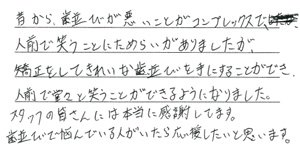 昔から、歯並びが悪いことがコンプレックスで、
人前で笑うことにためらいがありましたが、
矯正をしてきれいな歯並びを手にすることができ、
人前で堂々と笑うことができるようになりました。
スタッフの皆さんには本当に感謝してます。
歯並びで悩んでいる人がいたら応援したいと思います。